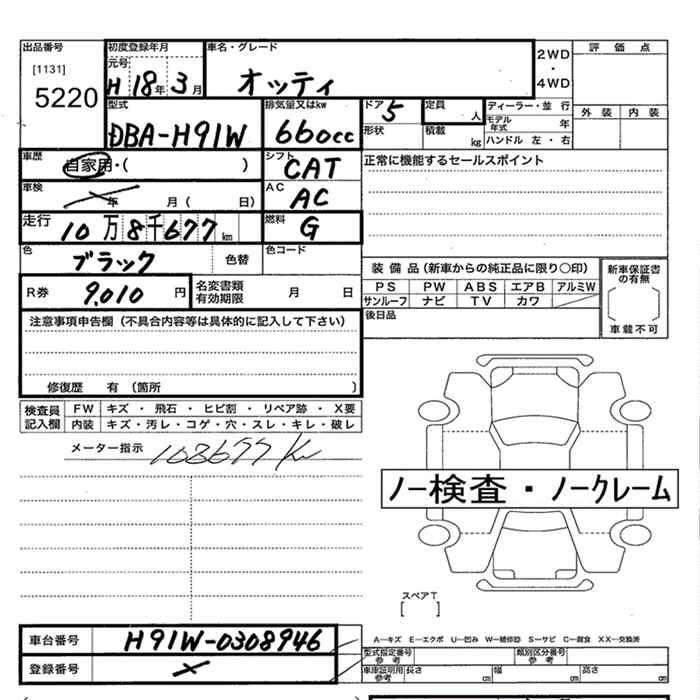 出品番号
[1131]
5220
初度登録年月
元号
H 18年 3月
車名・グレード
オッティ
2WD
・
4WD
評 価 点
外 装 内 装
型式
DBA-H91W
排気量又はkw
660cc
ドア 5
形状
定員 人
積載 kg
ディーラー・並 行
モデル年式 年
ハンドル 左 ・ 右
車歴
自家用・( )
シフト
CAT
正常に機能するセールスポイント
車検
年 月 ( 日)
AC
AC
走行
10万8千677km
燃料
G
色
ブラック
色替
色コード
装 備 品 (新車からの純正品に限り○印)
PS PW ABS エアB アルミW
サンルーフ ナビ TV カワ
新車保証書
の有無
車載不可
R券 9,010 円
名変書類
有効期限
月 日
後日品
注意事項申告欄 (不具合内容等は具体的に記入して下さい)
修復歴 有 (箇所 )
検査員
記入欄
FW キズ ・ 飛石 ・ ヒビ割 ・ リペア跡 ・ X要
内装 キズ・汚レ・コゲ・穴・スレ・キレ・破レ
メーター指示
108677 Km
ノー検査・ノークレーム
スペアT
[ ]
車台番号 H91W-0308946
登録番号 ×
A―キズ E―エクボ U―凹み W―補修跡 S―サビ C―腐食 XX―交換済
型式指定番号
参 考
類別区分番号
参 考
車庫証明用
参考
長さ cm 幅 cm 高さ cm